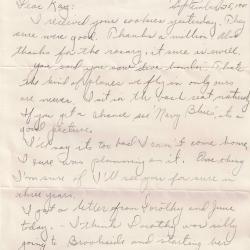 Dear Kay: September 25, 19
I received your cookies yesterday. They
sure were good. Thanks a million. Also
thanks for the rosary, it sure is swell.
you said you now live
the kind of planes we fly in only
are I sit in the back seat
If you get a chance see "Navy Blue", it's a
good picture.
It's too bad I can't come home,
I sure was planning on it. One thing
I'm sure of I'll see you for sure in
three years.
I got a letter from Dorothy and June
today. – I think Dorothy was silly
going to Brookside and starting her